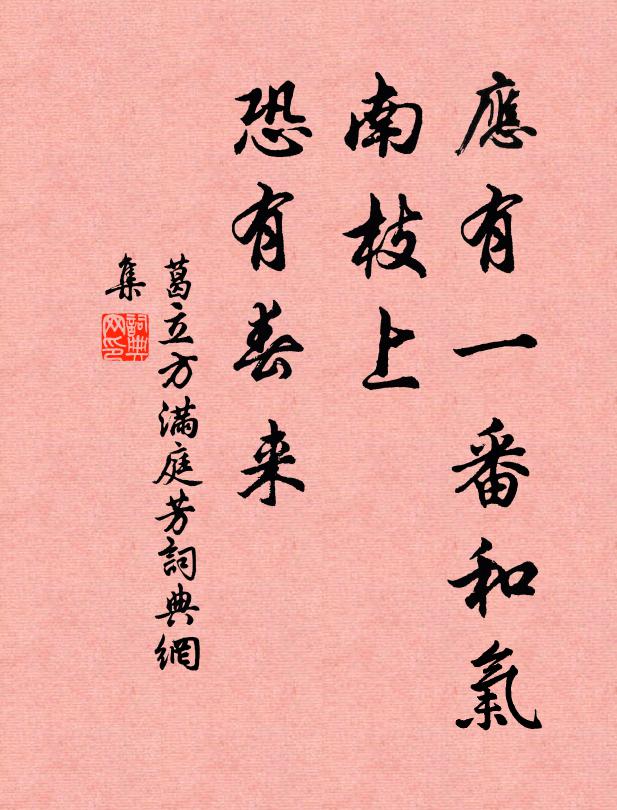 應有一番和氣
南枝上
恐有春来
葛立方滿庭芳詞典網
集
詞典
网印